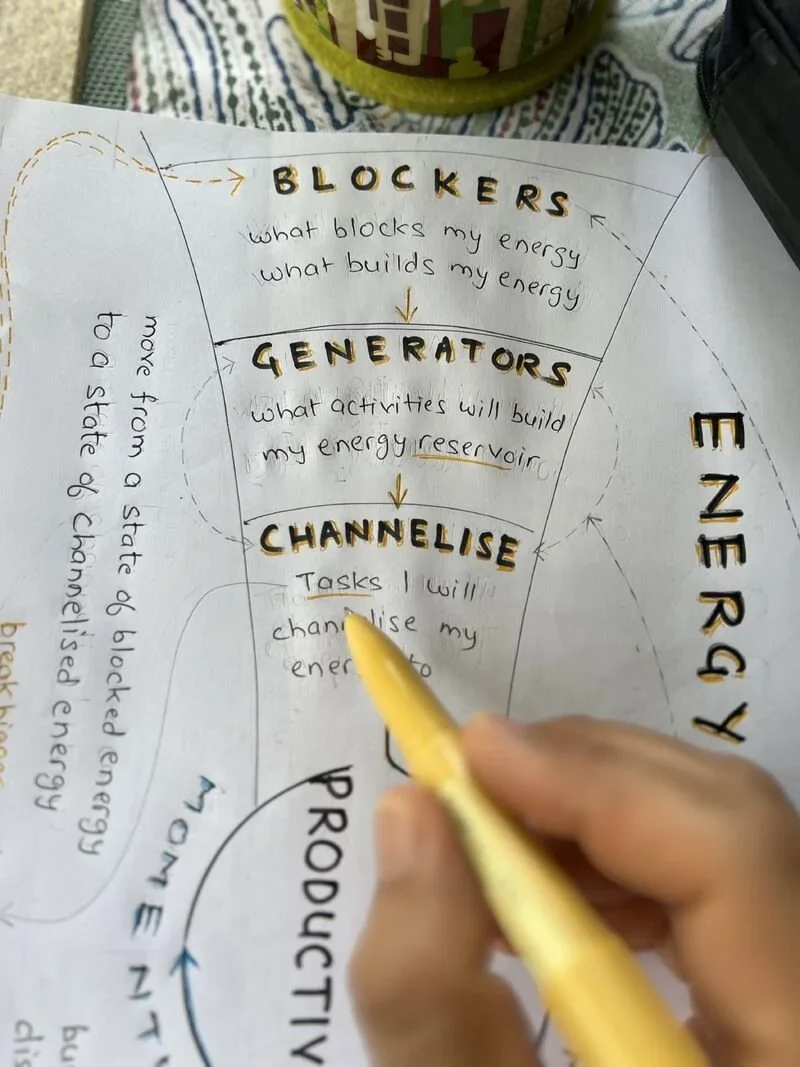 BLOCKERS
what blocks my energy
what builds my energy
GENERATORS
what activities will build
my energy reservoir
CHANNELISE
Tasks I will
my
to
ENERGY
move from a state of blocked energy
to a state of channelised energy